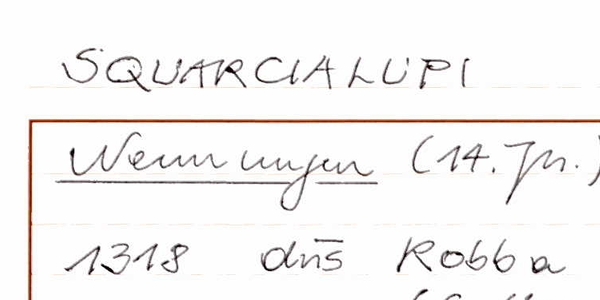 SQUARCIALUPI
Nennungen (14. Jh.)
1318 dn̄s Robba